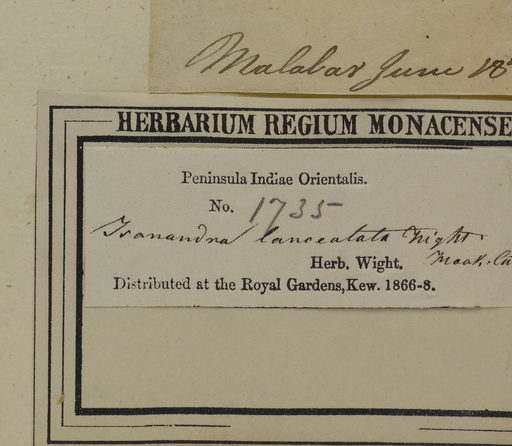 Malabar June 18
HERBARIUM REGIUM MONACENSE
Peninsula Indiae Orientalis.
No. 1735
Isonandra lanceolata Wight.
Herb. Wight.
Distributed at the Royal Gardens, Kew. 1866-8.